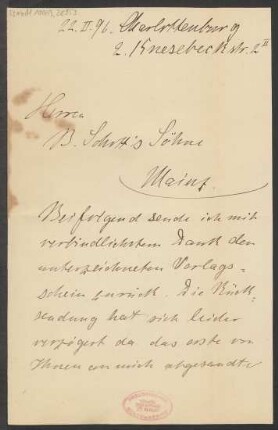 22.II.96. Charlottenburg
2. Knesebeckstr. 2 II
Herren
B. Schott's Söhne
Mainz.
Beifolgend sende ich mit
verbindlichstem Dank den
unterzeichneten Verlags-
schein zurück. Die Rück-
sendung hat sich leider
verzögert da das erste von
Ihnen an mich abgesandte